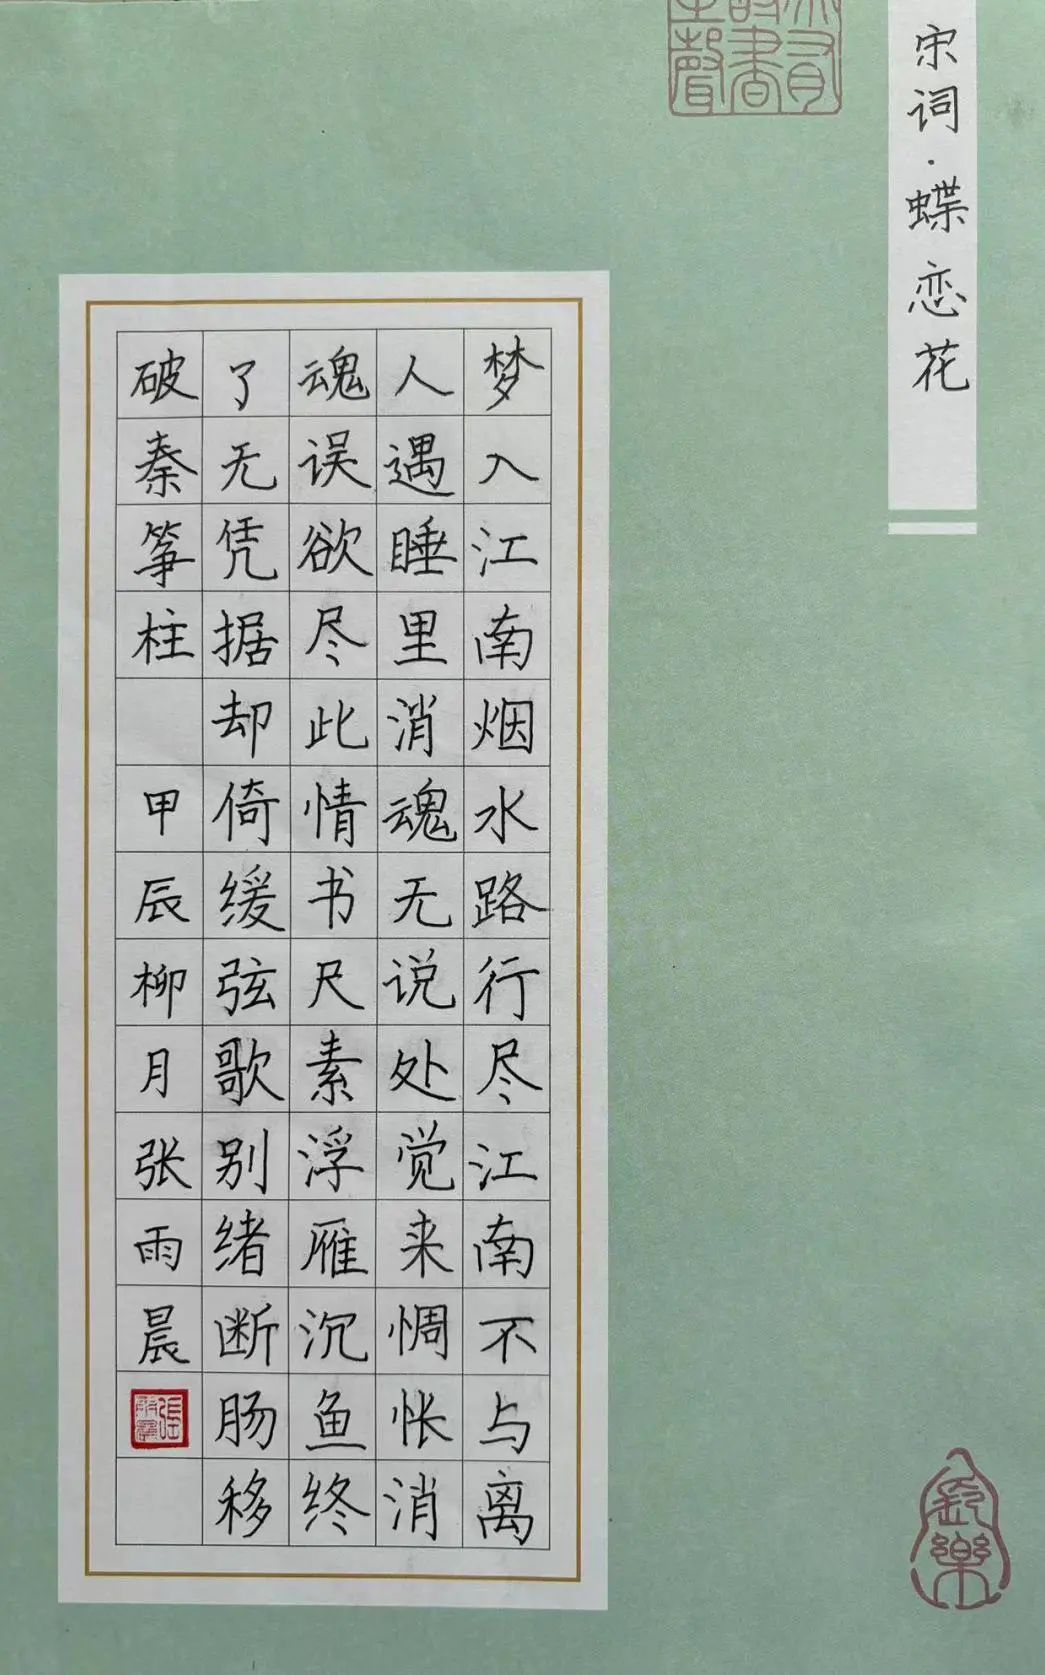 宋词·蝶恋花
梦入江南烟水路行尽江南不与离
人遇睡里消魂无说处觉来惆怅消
魂误欲尽此情书尺素浮雁沉鱼终
了无凭据却倚缓弦歌别绪断肠移
破秦筝柱 甲辰柳月张雨晨